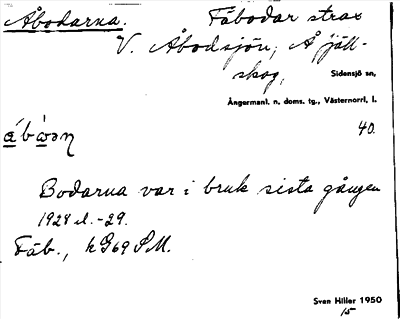 Åbodarna. Fäbodar strax
V. Åbodsjön, Å fjäll-
skog, Sidensjö sn,
Ångermanl. n. doms. tg., Västernorrl. l.
40.
Bodarna var i bruk sista gången
1928 el. -29.
Fäb., kG69 SM.
Sven Hiller 1950
15